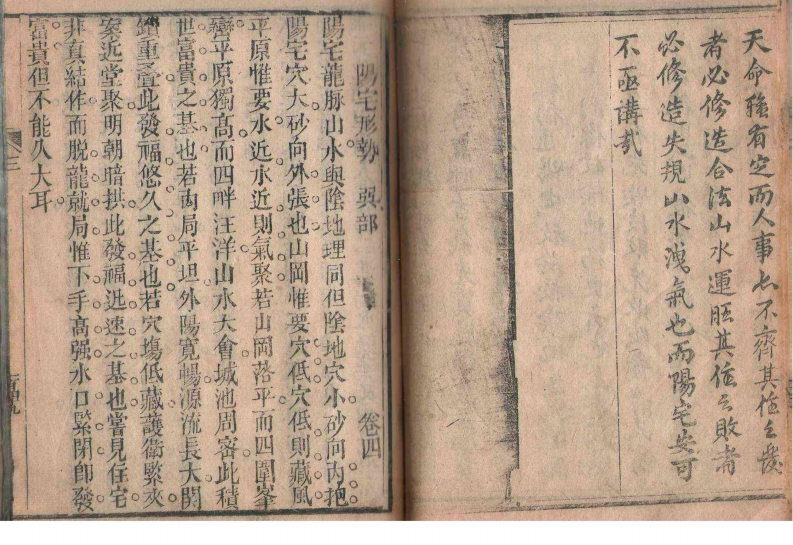 天命強有定而人事每不齊其住之發
者必修造合法山水運旺其住之敗者
必修造失規山水洩氣也而陽宅安可
不亟講哉
陽宅形勢 巽部 卷四
陽宅龍脉山水與陰地理同但陰地穴小砂向内抱
陽宅穴大砂向外張也山岡惟要穴低穴低則藏風
平原惟要水近水近則氣聚若山岡落平而四圍峯
巒平原獨高而四畔汪洋山水大會城池周密此積
世富貴之基也若内局平坦外陽寬暢源流長大関
鎖重疊此發福悠久之基也若穴塲低藏護衛緊夾
案近堂聚明朝暗拱此發福迅速之基也嘗見住宅
非真結作而脱龍就局惟下手高强水口緊閉卽發
富貴但不能久大耳
三